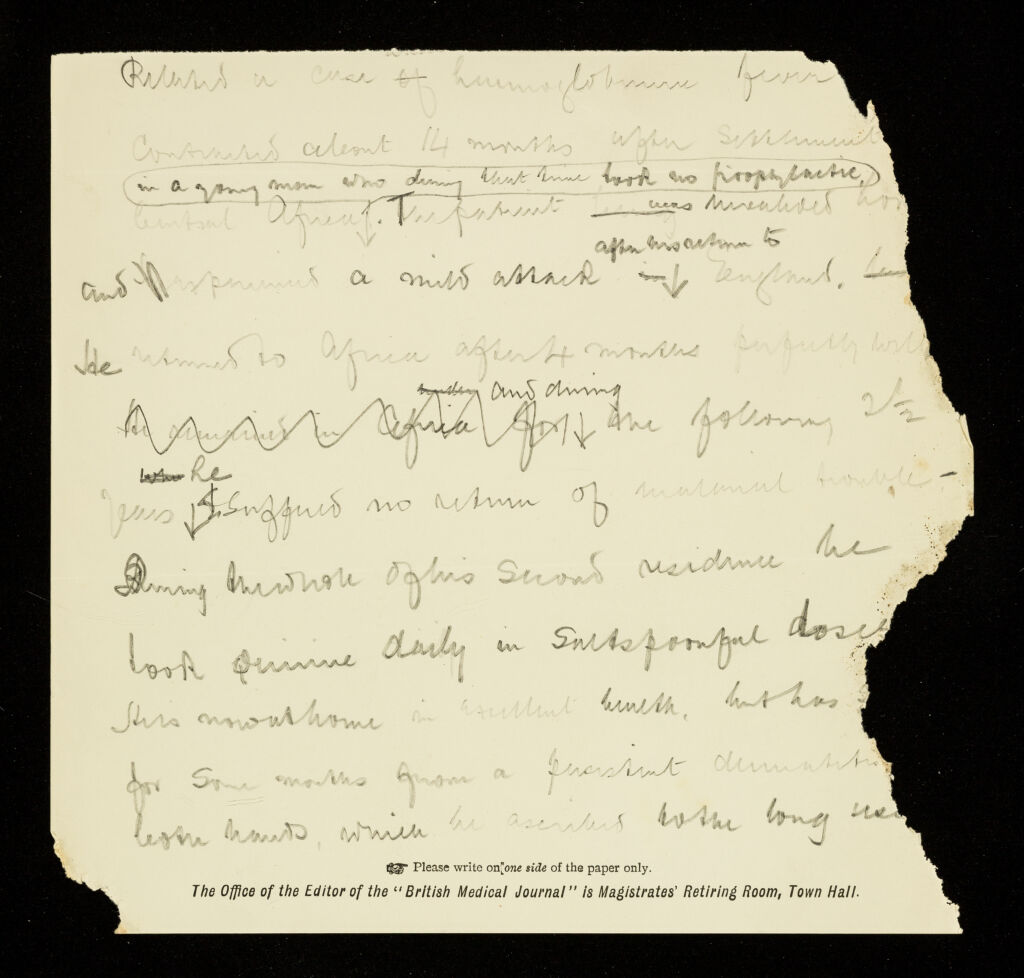 Related a case of haemoglobinuric fever
Contracted about 14 months after settlement
in a young man who during that time took no prophylactic,
Central Africa. The patient was invalided home
after his return to
and experienced a mild attack in England.
He returned to Africa after 4 months perfectly well
and during
He remained in Africa for the following 2½
who he
years suffered no return of malarial trouble –
During the whole of his second residence he
took quinine daily in saltspoonful doses
He is now at home in excellent health, but has
for some months from a persistent dermatitis
both hands, which he ascribed to the long use
Please write on one side of the paper only.
The Office of the Editor of the "British Medical Journal" is Magistrates' Retiring Room, Town Hall.